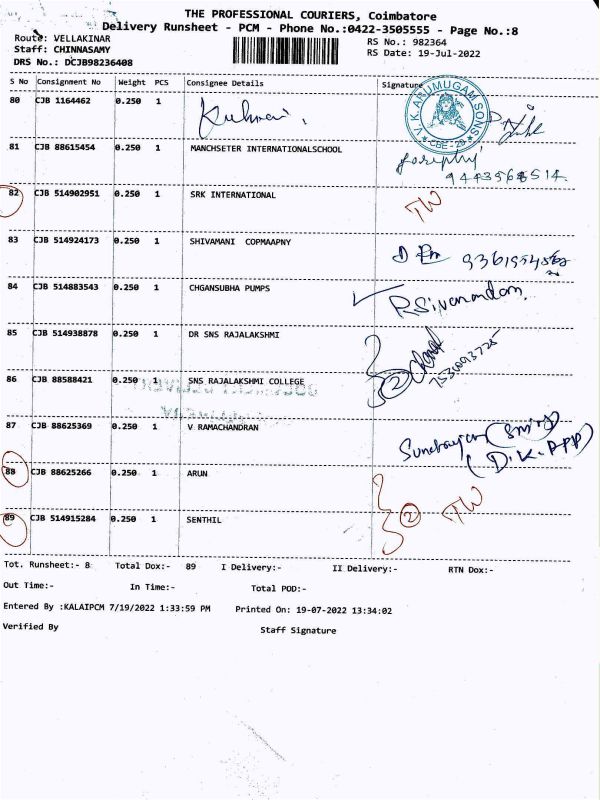 THE PROFESSIONAL COURIERS, Coimbatore
Delivery Runsheet - PCM - Phone No.:0422-3505555 - Page No.:8
Route: VELLAKINAR
RS No.: 982364
Staff: CHINNASAMY
RS Date: 19-Jul-2022
DRS No.: DCJB98236408
S No Consignment No Weight PCS Consignee Details Signature
80 CJB 1164462 0.250 1
V.K.ARUMUGAM SONS CBE-29
81 CJB 88615454 0.250 1 MANCHSETER INTERNATIONALSCHOOL
82 CJB 514902951 0.250 1 SRK INTERNATIONAL TW
83 CJB 514924173 0.250 1 SHIVAMANI COPMAAPNY
84 CJB 514883543 0.250 1 CHGANSUBHA PUMPS
R Sivanandam
85 CJB 514938878 0.250 1 DR SNS RAJALAKSHMI
86 CJB 88588421 0.250 1 SNS RAJALAKSHMI COLLEGE 2
87 CJB 88625369 0.250 1 V RAMACHANDRAN
88 CJB 88625266 0.250 1 ARUN
89 CJB 514915284 0.250 1 SENTHIL 2 TW
Tot. Runsheet:- 8 Total Dox:- 89 I Delivery:- II Delivery:- RTN Dox:-
Out Time:- In Time:- Total POD:-
Entered By :KALAIPCM 7/19/2022 1:33:59 PM Printed On: 19-07-2022 13:34:02
Verified By Staff Signature